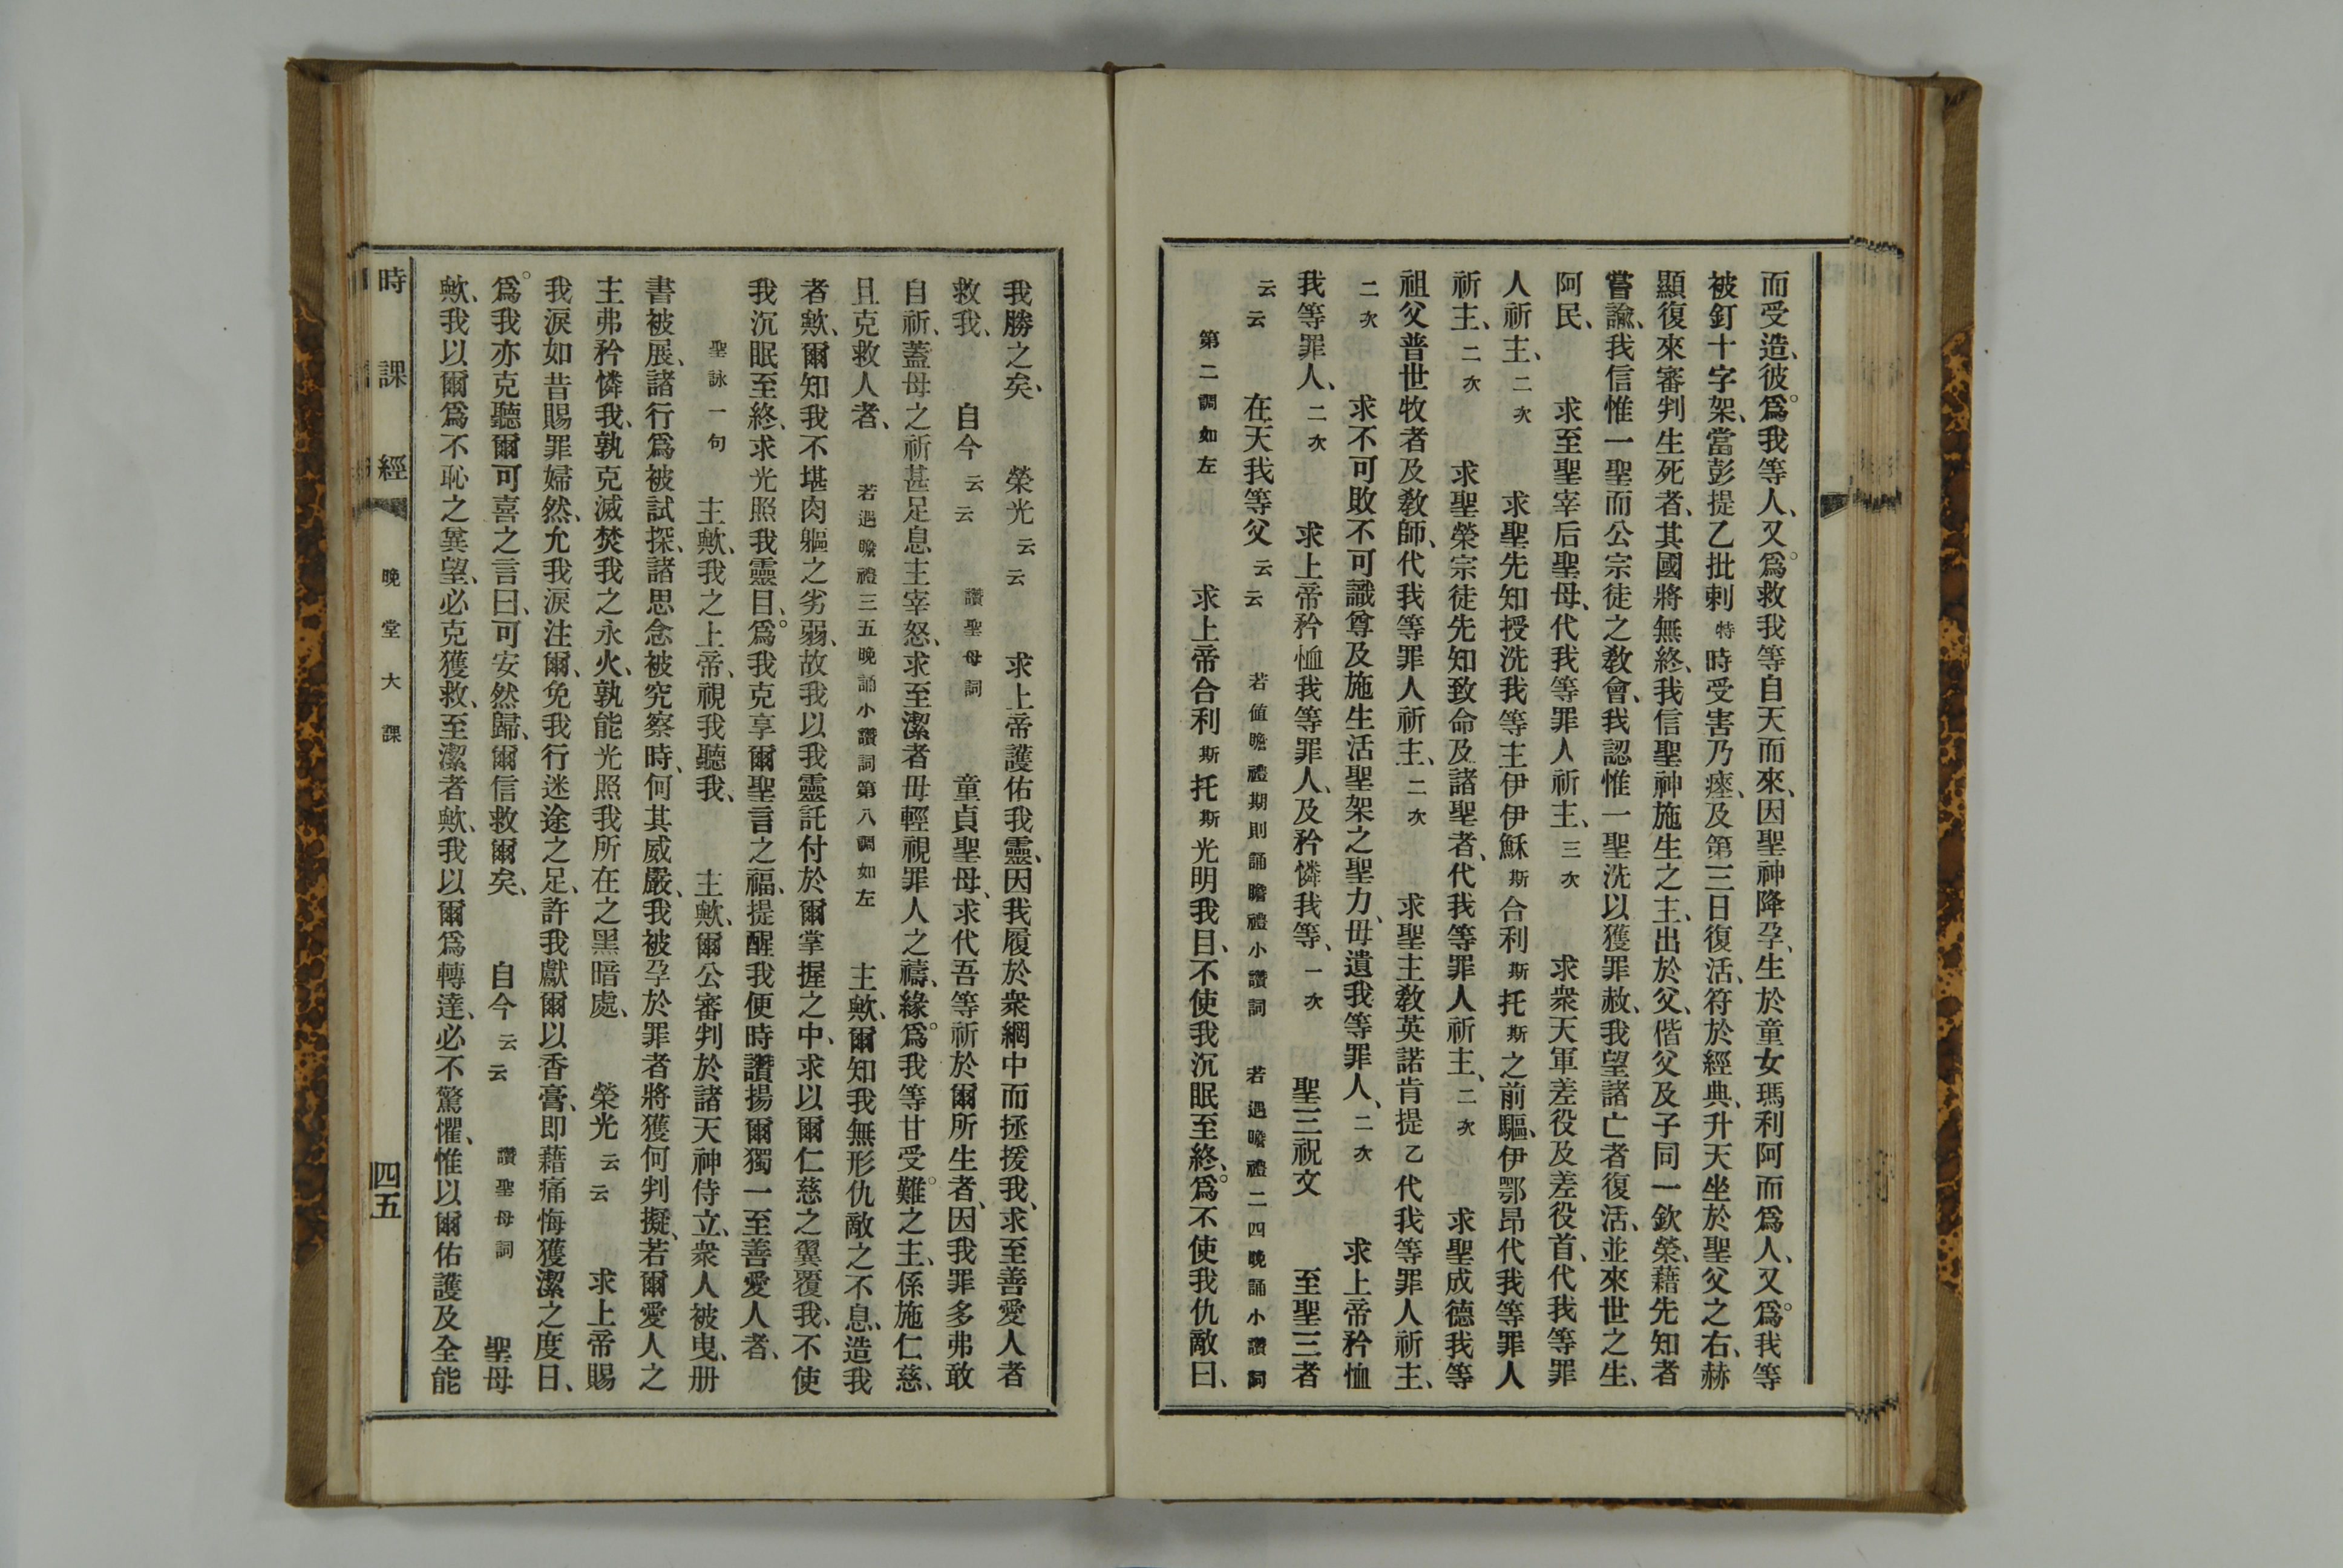 而受造、彼爲我等人、又爲救我等自天而來、因聖神降孕、生於童女瑪利阿而爲人、又爲我等
被釘十字架、當彭提乙批剌特時受害乃瘞、及第三日復活、符於經典、升天坐於聖父之右、赫
顯復來審判生死者、其國將無終、我信聖神施生之主、出於父、偕父及子同一欽榮、藉先知者
嘗諭、我信惟一聖而公宗徒之教會、我認惟一聖洗以獲罪赦、我望諸亡者復活、並來世之生、
阿民、 求至聖宰后聖母、代我等罪人祈主、三次 求衆天軍差役及差役首、代我等罪
人祈主、二次 求聖先知授洗我等主伊伊穌斯合利斯托斯之前驅、伊鄂昂代我等罪人
祈主、二次 求聖榮宗徒先知致命及諸聖者、代我等罪人祈主、二次 求聖成德我等
祖父普世牧者及教師、代我等罪人祈主、二次 求聖主教英諾肯提乙代我等罪人祈主、
二次 求不可敗不可識尊及施生活聖架之聖力、毋遺我等罪人、二次 求上帝矜恤
我等罪人、二次 求上帝矜恤我等罪人、及矜憐我等、一次 聖三祝文 至聖三者
云云 在天我等父云云 若値瞻禮期則誦瞻禮小讚詞 若遇瞻禮二四晚誦小讚詞
第二調如左 求上帝合利斯托斯光明我目、不使我沉眠至終、爲不使我仇敵曰、
我勝之矣、 榮光云云 求上帝護佑我靈、因我履於衆網中而拯援我、求至善愛人者
救我、 自今云云 讚聖母詞 童貞聖母、求代吾等祈於爾所生者、因我罪多弗敢
自祈、蓋母之祈甚足息主宰怒、求至潔者毋輕視罪人之禱、緣爲我等甘受難之主、係施仁慈、
且克救人者、 若遇瞻禮三五晚誦小讚詞第八調如左 主歟、爾知我無形仇敵之不息、造我
者歟、爾知我不堪肉軀之劣弱、故我以我靈託付於爾掌握之中、求以爾仁慈之翼覆我、不使
我沉眠至終、求光照我靈目、爲我克享爾聖言之福、提醒我便時讚揚爾獨一至善愛人者、
聖詠一句 主歟、我之上帝、視我聽我、 主歟、爾公審判於諸天神侍立、衆人被曳、册
書被展、諸行爲被試探、諸思念被究察時、何其威嚴、我被孕於罪者將獲何判擬、若爾愛人之
主弗矜憐我、孰克滅焚我之永火、孰能光照我所在之黑暗處、 榮光云云 求上帝賜
我淚如昔賜罪婦然、允我淚注爾、免我行迷途之足、許我獻爾以香膏、即藉痛悔獲潔之度日、
爲我亦克聽爾可喜之言曰、可安然歸、爾信救爾矣、 自今云云 讚聖母詞 聖母
歟、我以爾爲不恥之冀望、必克獲救、至潔者歟、我以爾爲轉達、必不驚懼、惟以爾佑護及全能
時課經 晚堂大課 四五